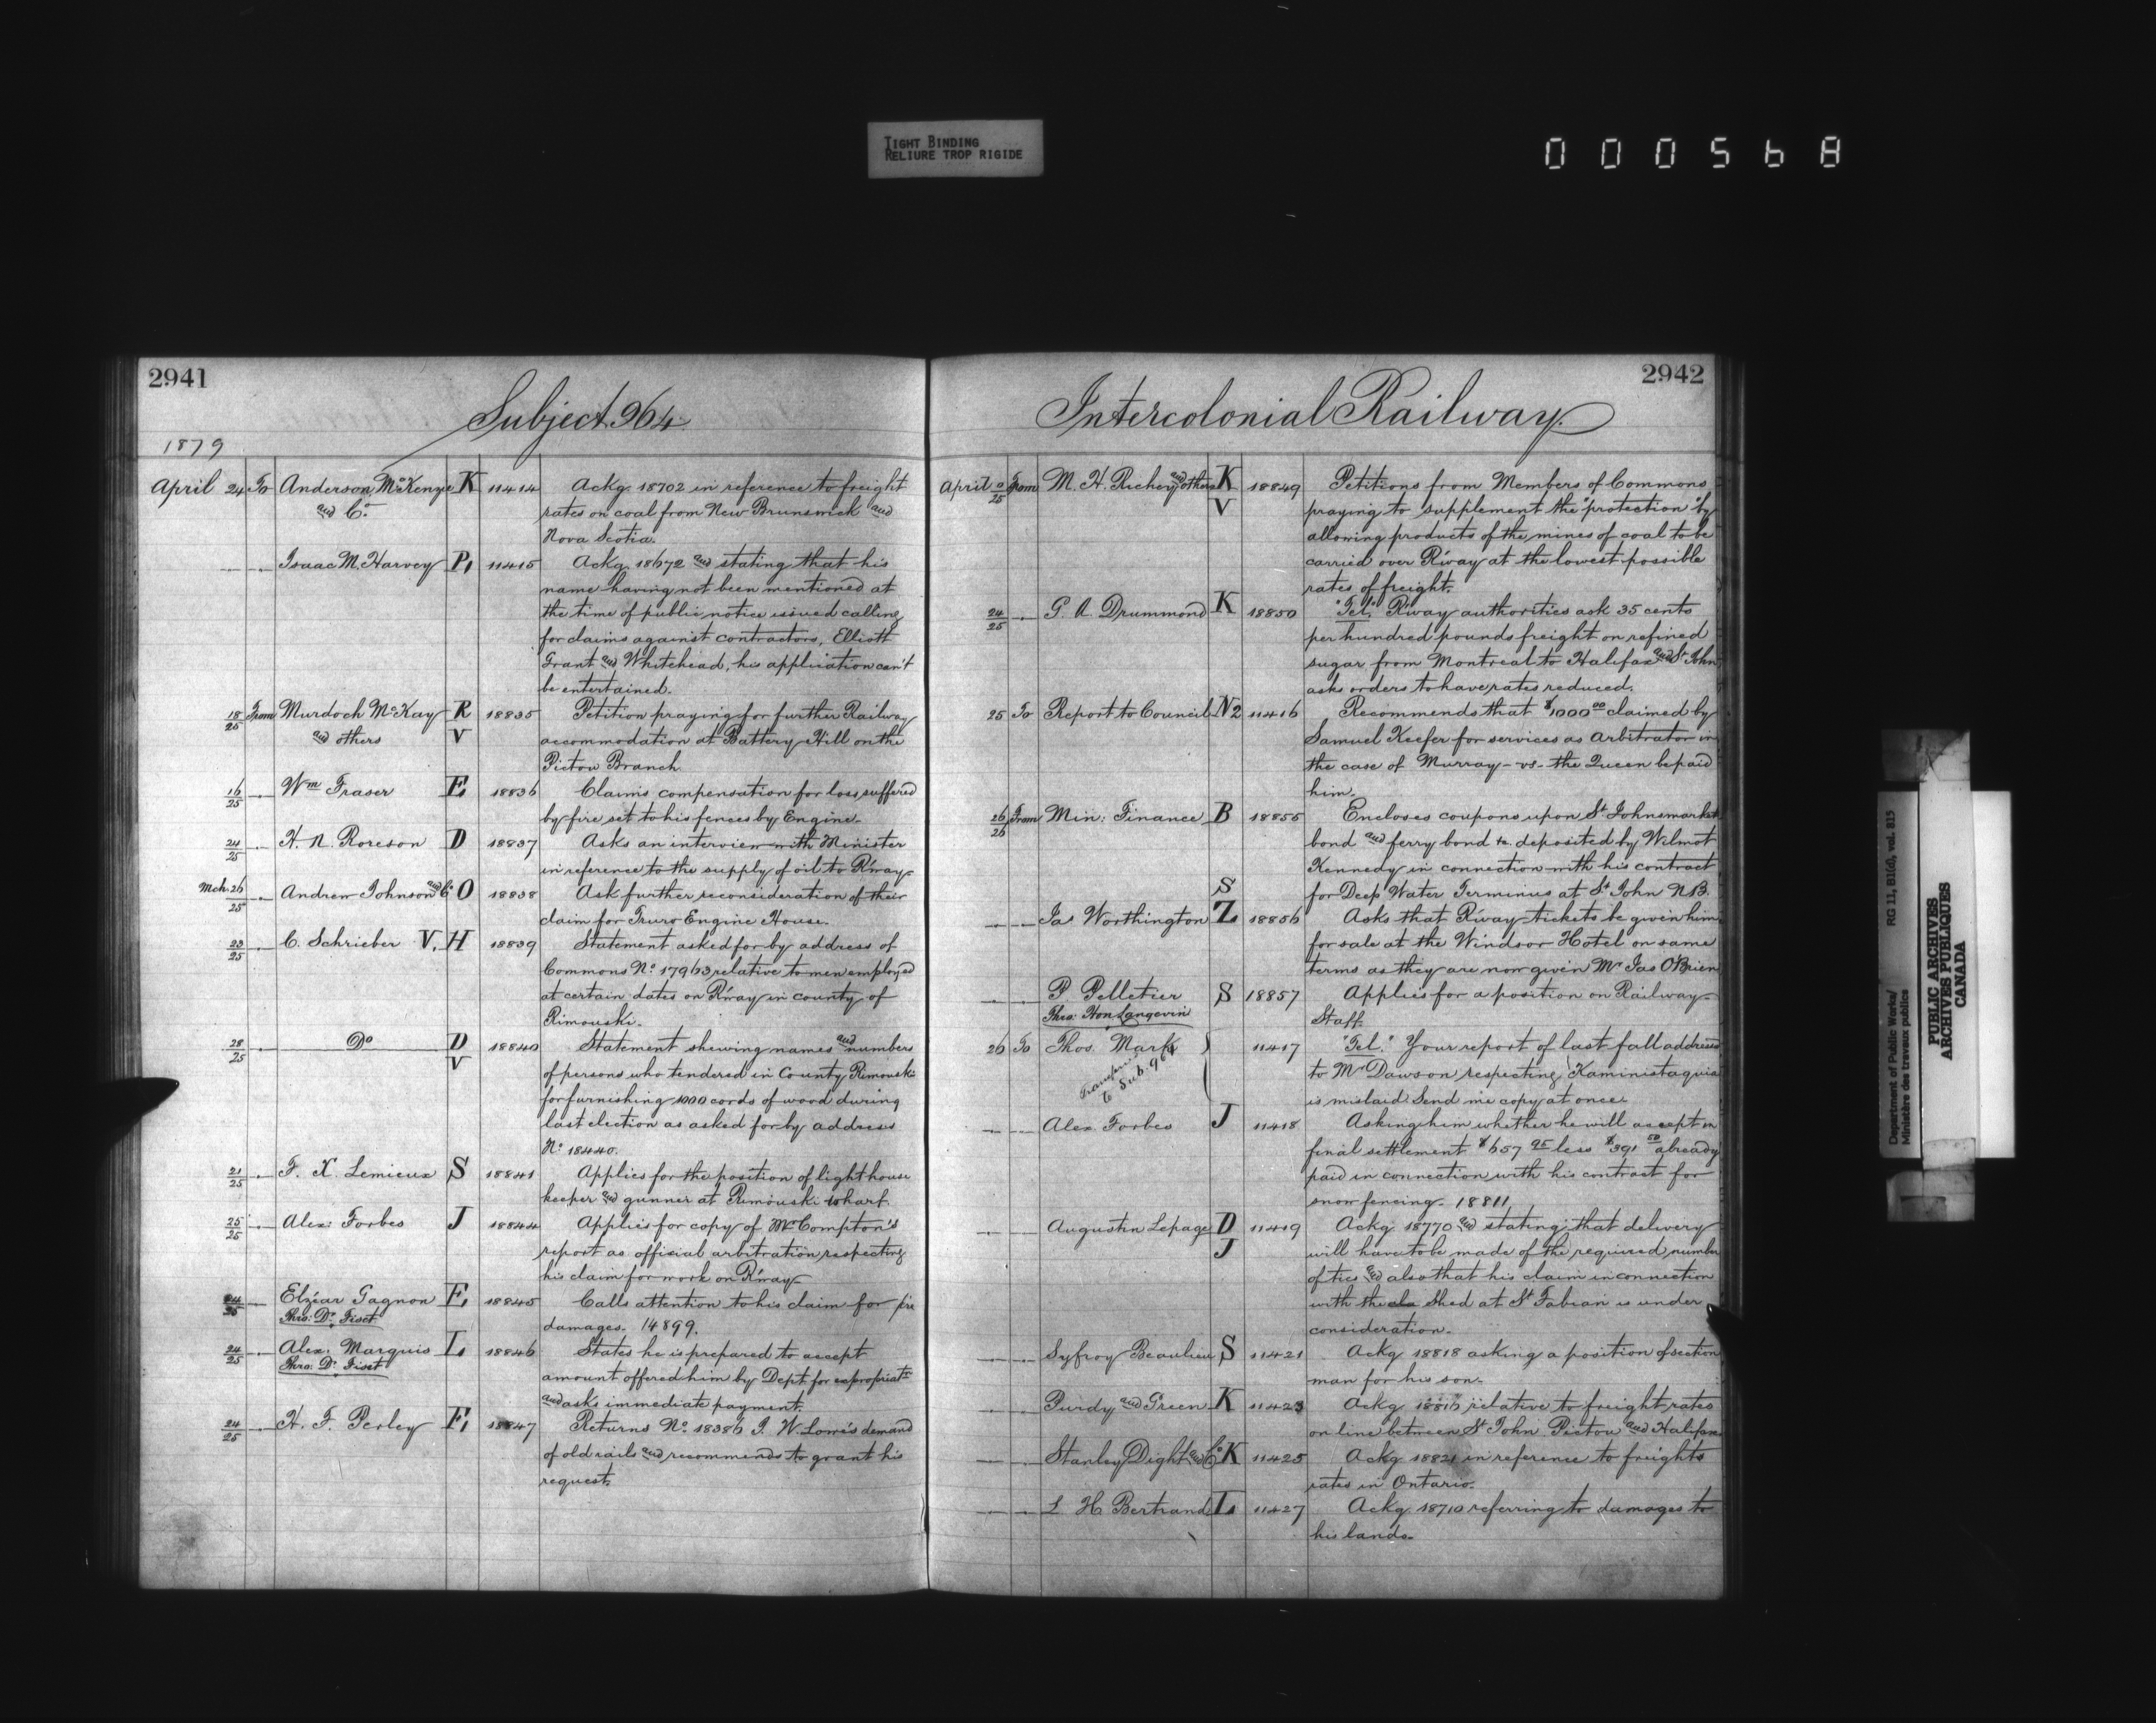 TIGHT BINDING
RELIURE TROP RIGIDE
000568
2941
Subject 964
1879
April 24 To Anderson, McKenzie K 11414 Ackg 18702 in reference to freight
and Co. rates on coal from New Brunswick and
Nova Scotia.
Isaac M. Harvey P, 11415 Ackg. 18672 and stating that his
name having not been mentioned at
the time of public notice issued calling
for claims against contractors, Elliott
Grant and Whitehead, his application can't
be entertained.
18/25 From Murdoch McKay R 18835 Petition praying for further Railway
and others V accommodation at Battery Hill on the
Pictou Branch
16/25 Wm Fraser E, 18836 Claims compensation for loss suffered
by fire set to his fences by Engine.
24/25 H. N. Roreson D 18837 Asks an interview with Minister
in reference to the supply of oil to R'way.
Mch. 26/25 Andrew Johnson and Co O 18838 Ask further reconsideration of their
claim for Truro Engine House.
23/25 C. Schrieber V, H 18839 Statement asked for by address of
Commons No. 17963 relative to men employed
at certain dates on R'way in county of
Rimouski.
28/25 Do D 18840 Statement shewing names and numbers
V of persons who tendered in County Rimouski
for furnishing 1000 cords of wood during
last election as asked for by address
No. 18440.
21/25 F. X. Lemieux S 18841 Applies for the position of light house
keeper and gunner at Rimouski wharf.
25/25 Alex: Forbes J 18844 Applies for copy of Mr Compton's
report as official arbitration respecting
his claim for work on R'way
24/25 Elzéar Gagnon E, 18845 Calls attention to his claim for fire
Thro: Dr. Fiset damages. 14899.
24/25 Alex. Marquis L, 18846 States he is prepared to accept
Thro: Dr. Fiset amount offered him by Dept. for expropriatn
and asks immediate payment.
24/25 H. F. Perley F, 18847 Returns No. 18386 J. W. Lowe's demand
of old rails and recommends to grant his
request.
2942
Intercolonial Railway.
April 0/25 From M. H. Richey and others K 18849 Petitions from Members of Commons
V praying to supplement the "protection" by
allowing products of the mines of coal to be
carried over R'way at the lowest possible
rates of freight.
24/25 G. A. Drummond K 18850 "Tel." R'way authorities ask 35 cents
per hundred pounds freight on refined
sugar from Montreal to Halifax and St John
asks orders to have rates reduced.
25 To Report to Council N2 11416 Recommends that $1000.00 claimed by
Samuel Keefer for services as Arbitrator in
the case of Murray - vs - the Queen be paid
him.
26/26 From Min: Finance B 18855 Encloses coupons upon St Johns market
bond and ferry bond &c. deposited by Wilmot
Kennedy in connection with his contract
S for Deep Water Terminus at St John N.B.
Jas Worthington Z 18856 Asks that R'way tickets be given him
for sale at the Windsor Hotel on same
terms as they are now given Mr Jas O'Brien
P Pelletier S 18857 Applies for a position on Railway
Thro: Hon Langevin Staff.
26 To Thos. Mark 11417 "Tel." Your report of last fall address
Transferred to Sub. 964 to Mr Dawson respecting Kaministaquia
is mislaid. Send me copy at once.
Alex Forbes J 11418 Asking him whether he will accept in
final settlement $657 95 less $391 50 already
paid in connection with his contract for
snow fencing. 18811.
Augustin Lepage D 11419 Ackg. 18770 and stating that delivery
J will have to be made of the required number
of ties and also that his claim in connection
with the Shed at St Fabian is under
consideration.
Syfroy Beaulieu S 11421 Ackg 18818 asking a position of section
man for his son.
Purdy and Green K 11423 Ackg. relative to freight rates
on line between St John Pictou and Halifax
Stanley Dight and Co K 11425 Ackg 18821 in reference to freights
rates in Ontario.
L. H. Bertrand L 11427 Ackg. 18710 referring to damages to
his lands.
Department of Public Works/ RG 11, B1(a), vol. 815
Ministère des travaux publics
PUBLIC ARCHIVES
ARCHIVES PUBLIQUES
CANADA